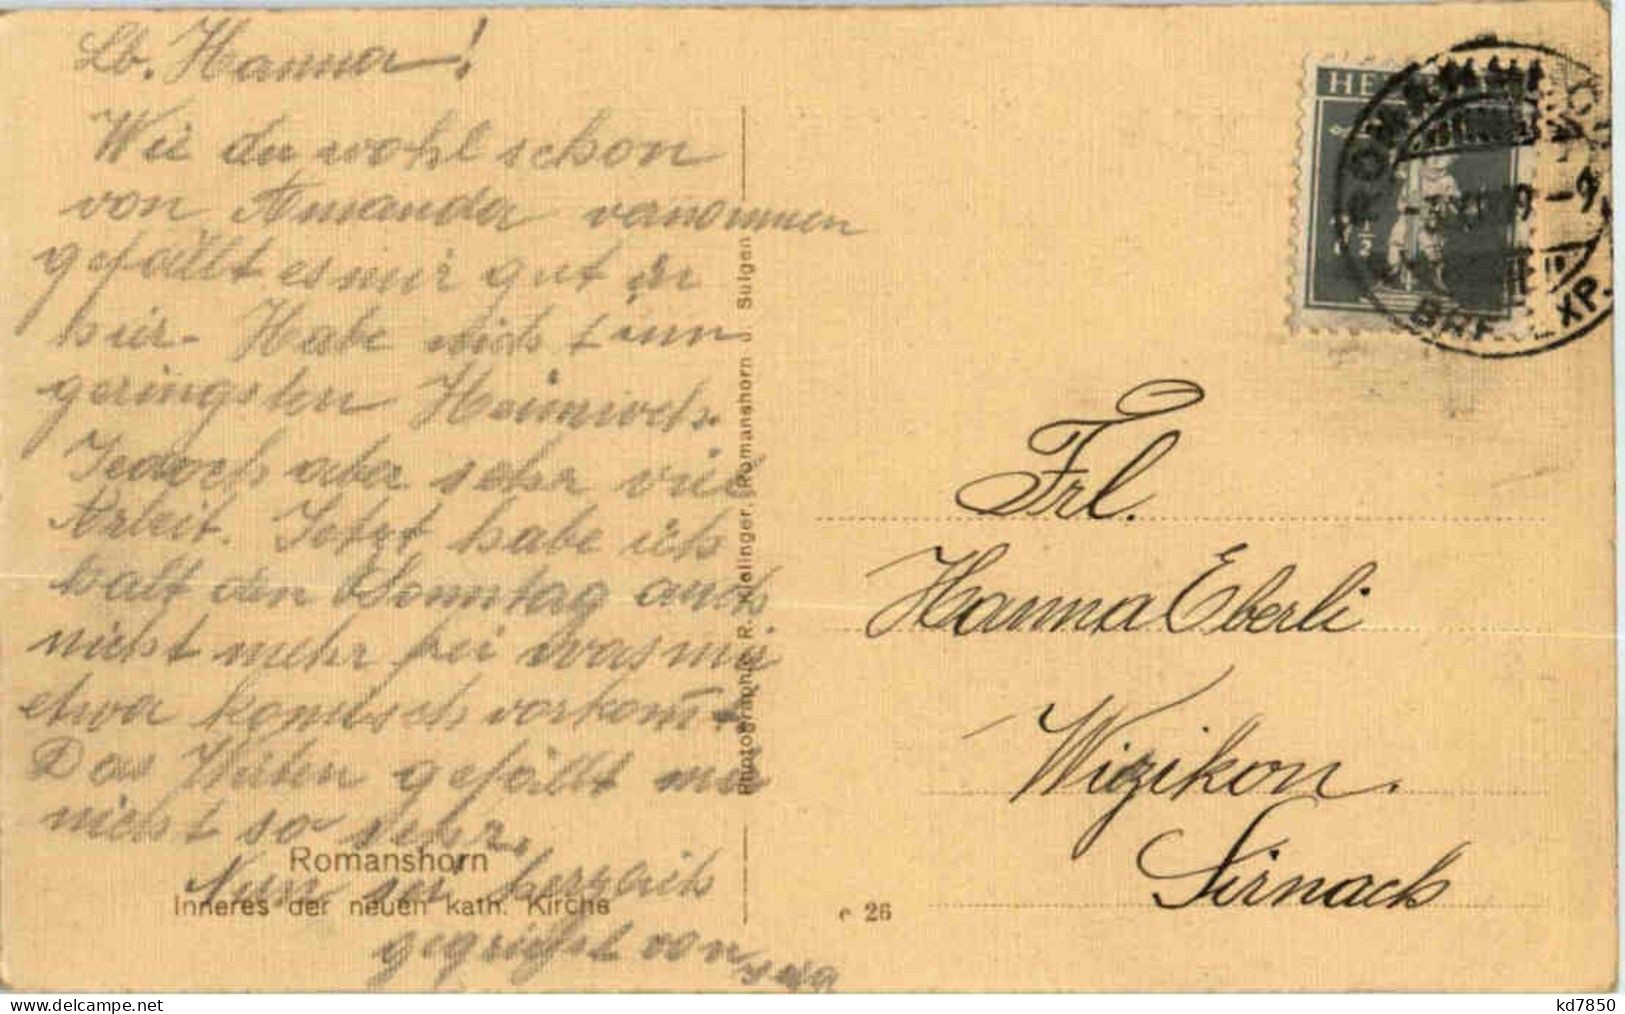 Lb. Hanna!
Wie du wohl schon
von Amanda vernommen
gefällt es mir gut
hier. Habe nicht
geringsten Heimweh.
Jedoch aber sehr viel
Arbeit. Jetzt habe ich
halt den Sonntag auch
nicht mehr frei was mir
etwa komisch vorkommt
Das gefällt mir
nicht so sehr.
Nun sei herzlich
gegrüsst von
Romanshorn
Inneres der neuen kath. Kirche
Photographie R. Romanshorn u. Sulgen
e 26
HE
ROMANSHORN
BRF. EXP.
Frl.
Hanna Eberli
Wizikon.
Sirnach
kd7850